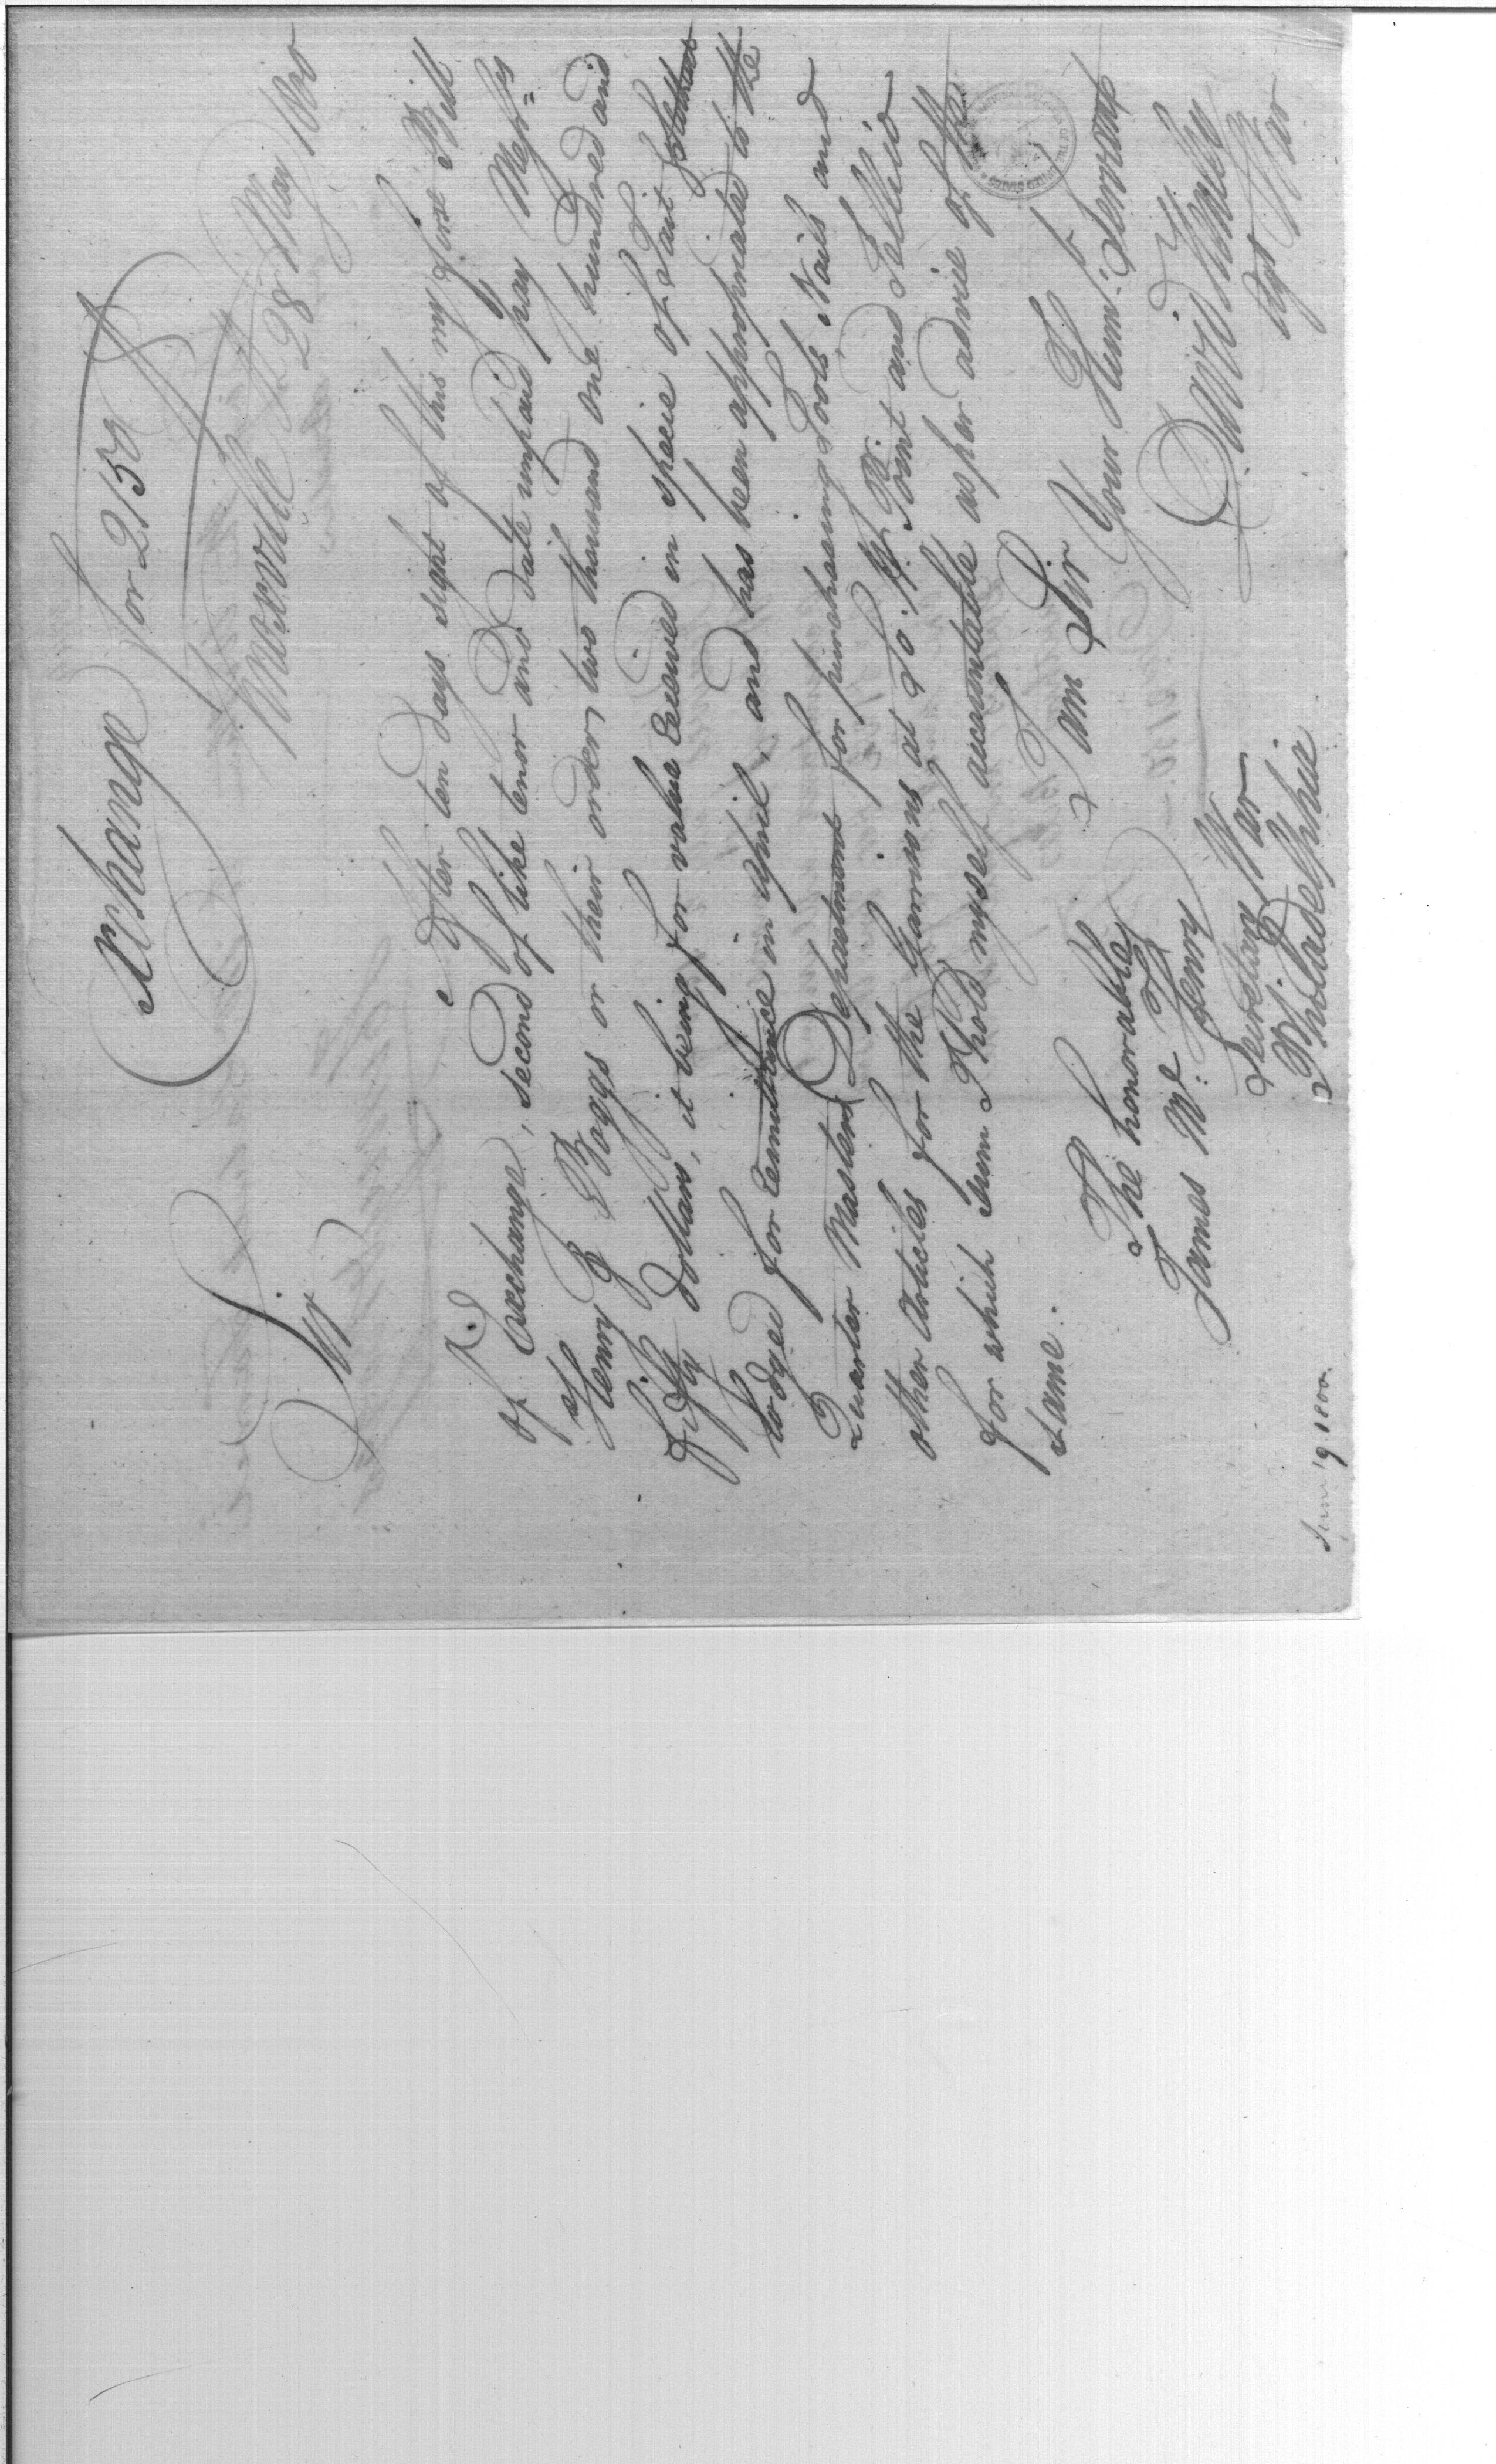 Exchange for 2150
Knoxville 28 May 1800
Sir
After ten days sight of this my first Bill
of Exchange, second of like tenor and date unpaid pay Messrs
Henry & Boggs or their order, two thousand one hundred and
fifty dollars, it being for value received in specie of Saint
lodged for remittance in april, and has been appropriated to the
Quarter Masters Department for purchasing Tools, Nails and
other Articles for the Garrisons at So. W. Point and Tellico
for which sum I hold myself accountable as per advice of the
same.
I am Sir
Your Humb. Servant
The honorable
James Mc. Henry
Secretary War
Philadelphia
David Henley
Agt War
June 19 1800